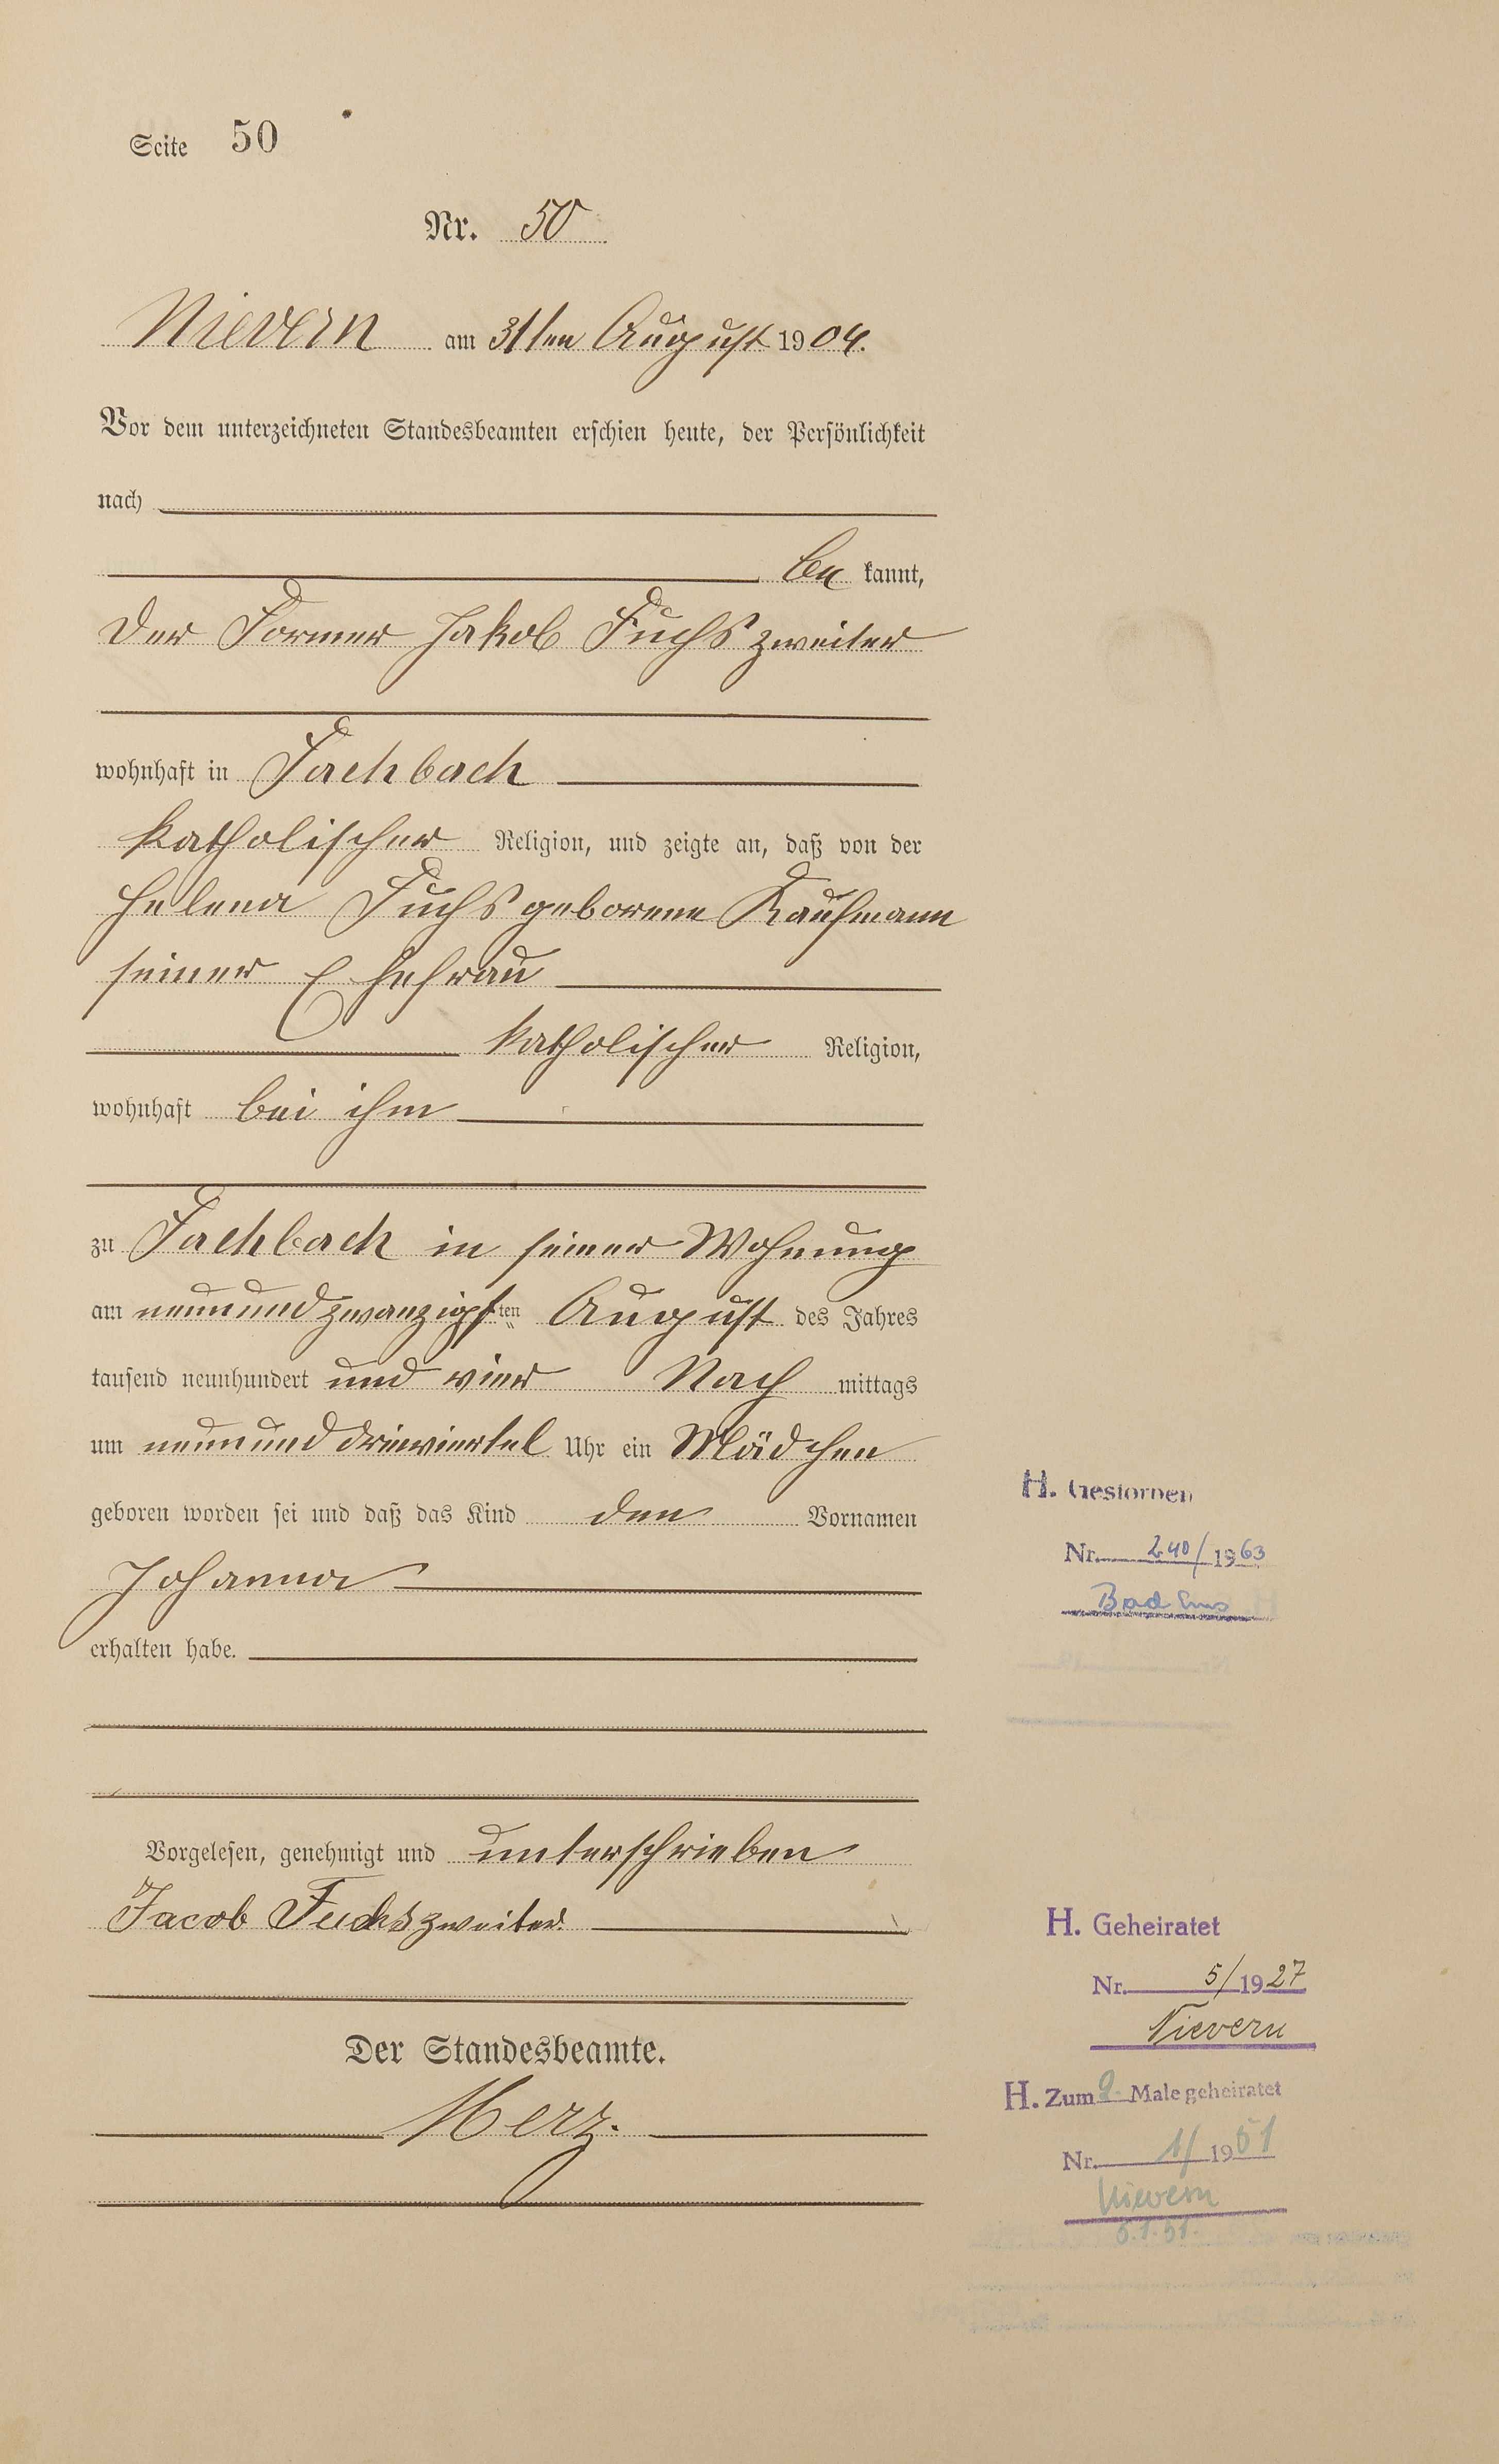 Seite 50
Nr. 50
Nievern am 31ten August 1904.
Vor dem unterzeichneten Standesbeamten erschien heute, der Persönlichkeit
nach
be kannt,
der Former Jakob Fuchs zweiter
wohnhaft in Fachbach
katholischer Religion, und zeigte an, daß von der
Helena Fuchs geborene Kaufmann
seiner Ehefrau
katholischer Religion,
wohnhaft bei ihm
zu Fachbach in seiner Wohnung
am neunundzwanzigsten August des Jahres
tausend neunhundert und vier Nach mittags
um neunund dreiviertel Uhr ein Mädchen
geboren worden sei und daß das Kind den Vornamen
Johanna
erhalten habe.
Vorgelesen, genehmigt und unterschrieben
Jacob Fuchs zweiter.
Der Standesbeamte.
Merz.
H. Gestorben
Nr. 240/1963
Bad Ems
H. Geheiratet
Nr. 5/1927
Nievern
H. Zum 2. Male geheiratet
Nr. 1/1951
Nievern
5.1.51.